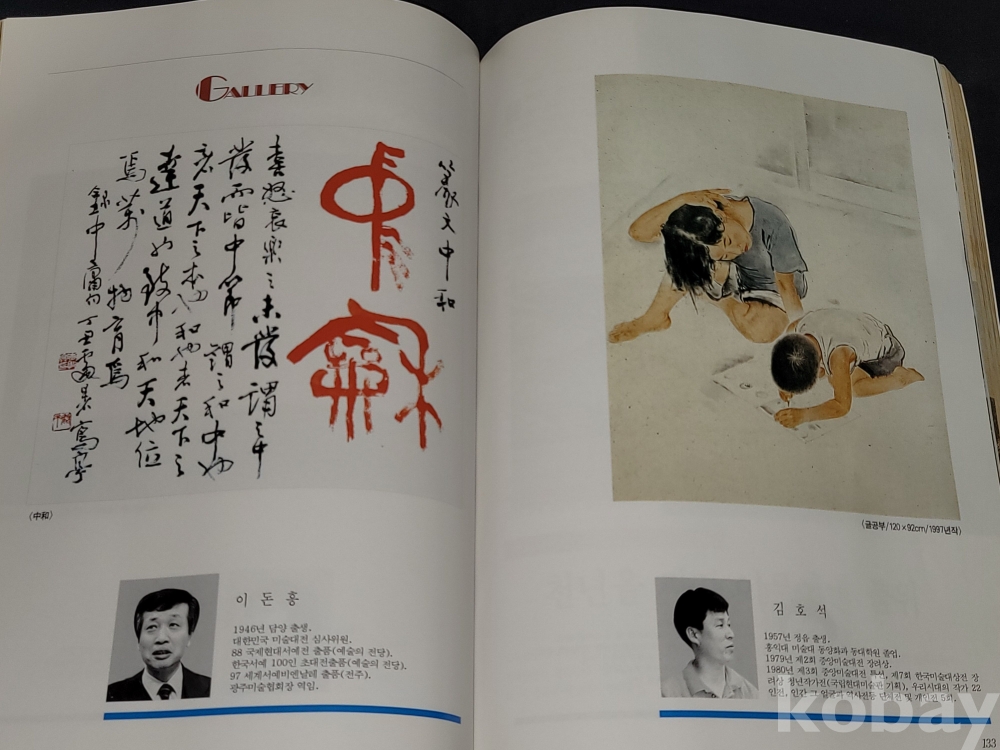 GALLERY
篆文中和
中龢
喜怒哀樂之未發謂之中
發而皆中節謂之和中也
者天下之本也和也者天下之
達道也致中和天地位
焉萬物育焉
錄中庸句丁丑處暑
〈中和〉
이 돈 흥
1946년 담양 출생.
대한민국 미술대전 심사위원.
88 국제현대서예전 출품(예술의 전당).
한국서예 100인 초대전출품(예술의 전당).
97 세계서예비엔날레 출품(전주).
광주미술협회장 역임.
〈글공부/120×92cm/1997년작〉
김 호 석
1957년 정읍 출생.
홍익대 미술대 동양화과 동대학원 졸업.
1979년 제2회 중앙미술대전 장려상.
1980년 제3회 중앙미술대전 특선, 제7회 한국미술대상전 장
려상 청년작가전(국립현대미술관 기획), 우리시대의 작가 22
인전, 인간 그 얼굴과 역사전등 단체전 및 개인전 5회.
kobay
133